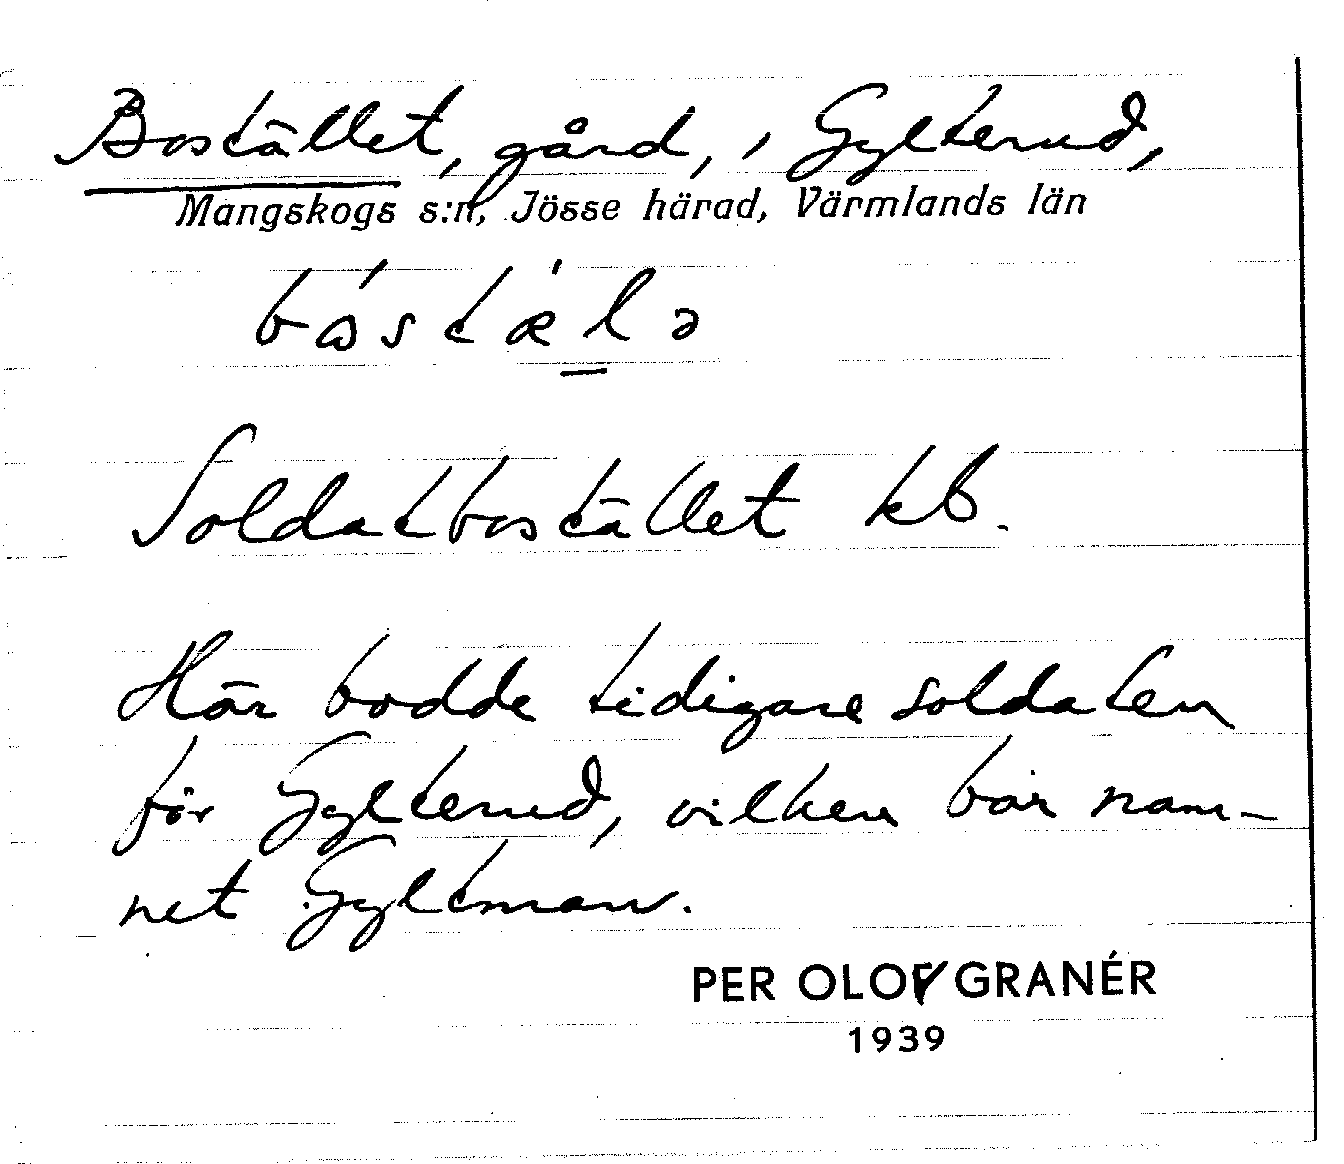 Bostället, gård, i Gylterud,
Mangskogs s:n, Jösse härad, Värmlands län
bɷ́stæ̀lə
Soldatbostället kb.
Här bodde tidigare soldaten
för Gylterud, vilken bar nam-
net Gyltman.
PER OLOV GRANÉR
1939